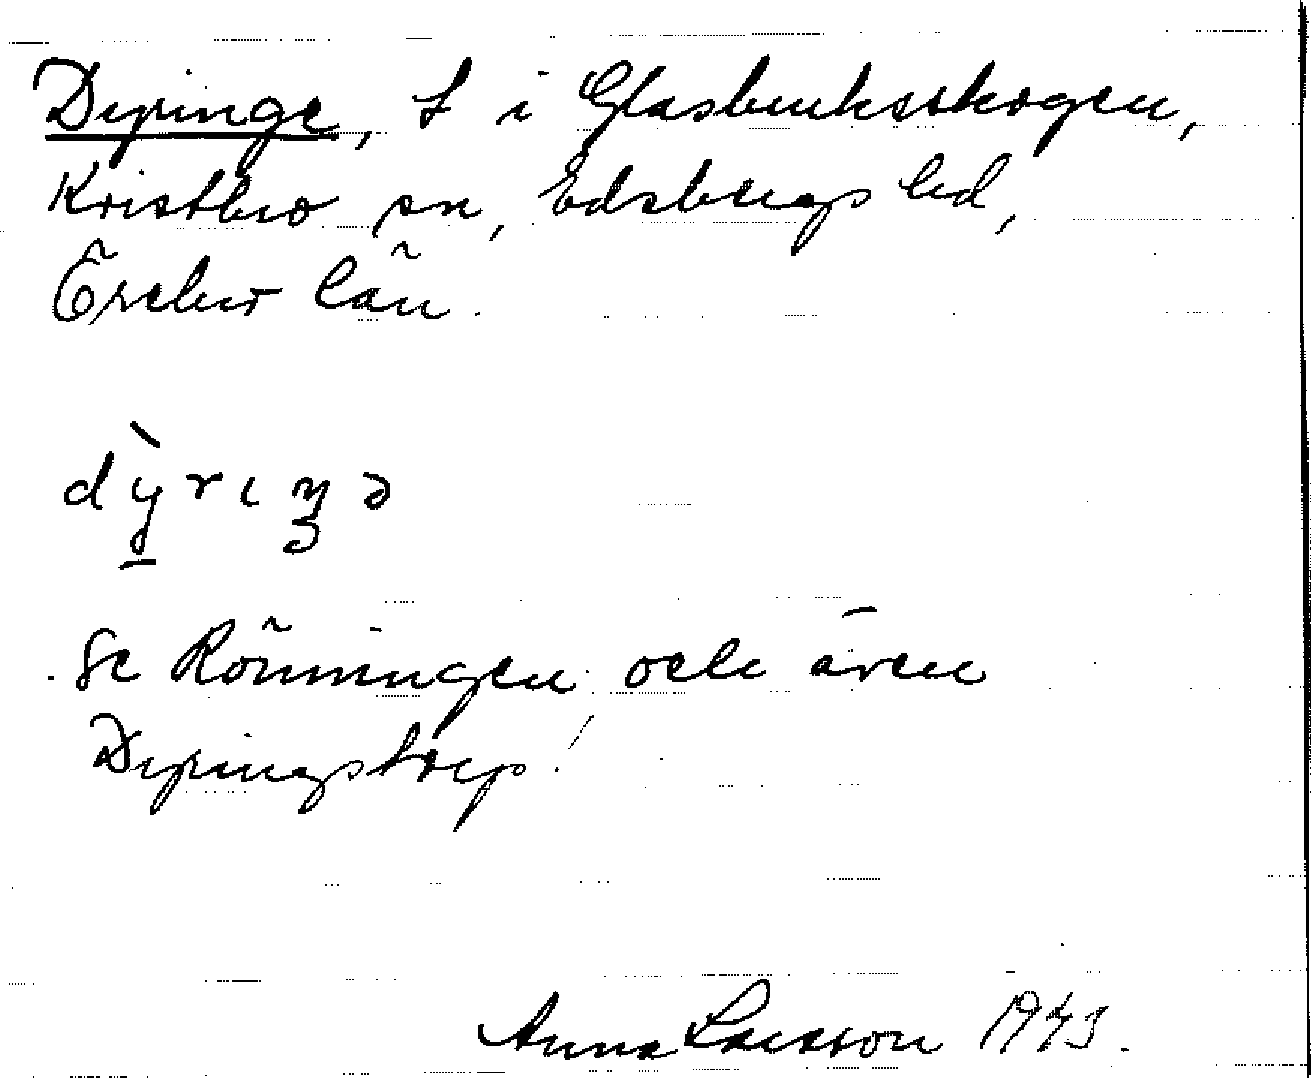 Dyringe, t i Glasbruksskogen,
Kvistbro sn, Edsbergs hd,
Örebro län.
dỳrıŋə
Se Römningen och även
Dyringstorp!
Anna Larsson 1943.